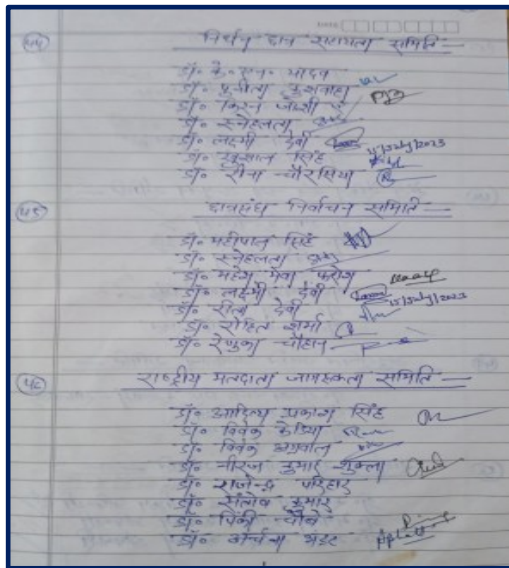 ४४ निर्धन छात्र सहायता समिति
डॉ० के० एन० यादव
डॉ० पुनीता कुशवाहा
डॉ० किरन जोशी
डॉ० स्नेहलता
डॉ० लक्ष्मी देवी
15/July/2023
डॉ० खुशाल सिंह
डॉ० रीना चौरसिया
४५ छात्रसंघ निर्वाचन समिति
डॉ० महीपाल सिंह
डॉ० स्नेहलता
डॉ० महेश
डॉ० लक्ष्मी देवी
15/July/2023
डॉ० देवी
डॉ० रोहित शर्मा
डॉ० रेणुका चौहान
राष्ट्रीय मतदाता जागरूकता समिति
डॉ० आदित्य प्रकाश सिंह
डॉ० विवेक केडिया
डॉ० विवेक अग्रवाल
डॉ० नीरज कुमार शुक्ला
डॉ० राजेन्द्र परिहार
डॉ० संतोष कुमार
डॉ० पिंकी
डॉ० अर्चना भट्ट